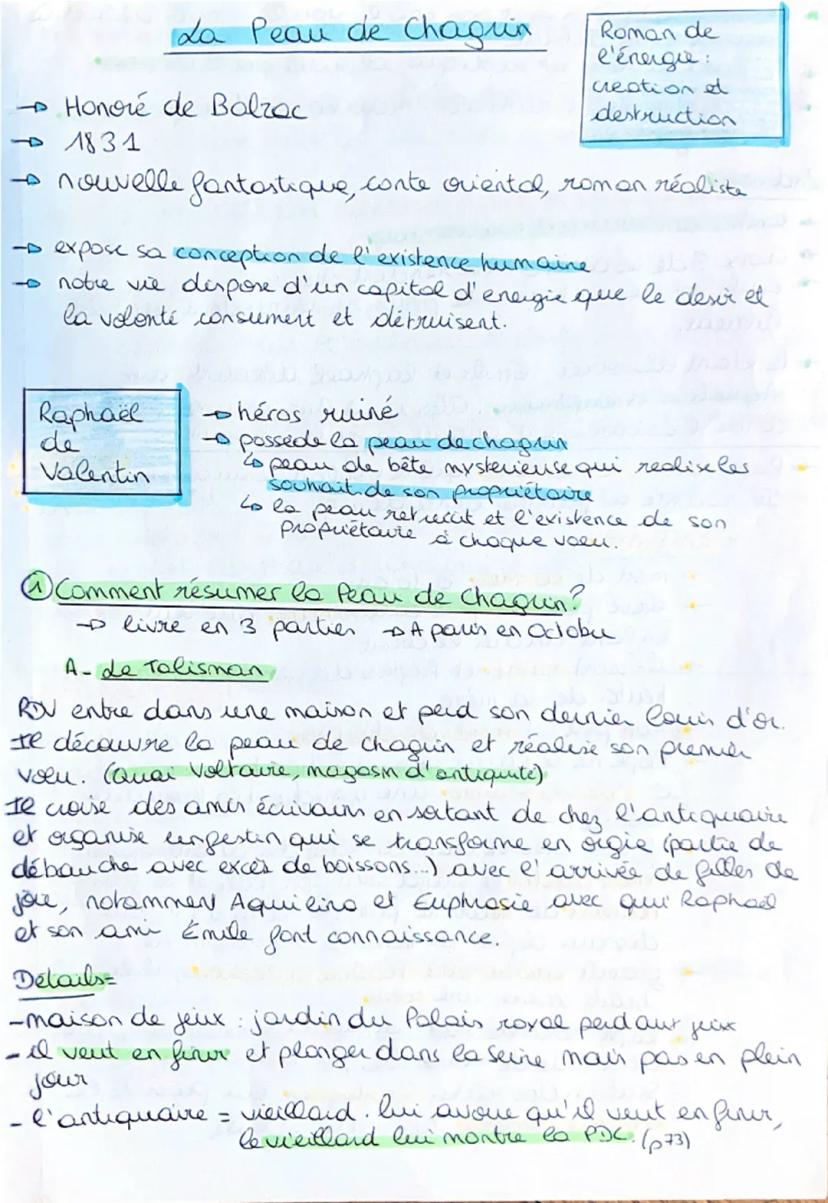 La Peau de Chagrin
Roman de
l'énergie :
creation et
destruction
→ Honoré de Balzac
→ 1831
→ nouvelle fantastique, conte oriental, roman réaliste
→ expose sa conception de l'existence humaine
→ notre vie dispose d'un capital d'energie que le desir et
la volonté consument et détruisent.
Raphaël
de
Valentin
→ héros ruiné
→ possède la peau de chagrin
↳ peau de bête mysterieuse qui realise les
souhait de son propriétaire
↳ la peau retrecit et l'existence de son
propriétaire à chaque voeu.
① Comment résumer la Peau de Chagrin ?
→ livre en 3 parties → A paris en octobre
A- Le Talisman
RDV entre dans une maison et perd son dernier louis d'or.
Il découvre la peau de chagrin et réalise son premier
voeu. (Quai Voltaire, magasin d'antiquité)
Il croise des amis écrivains en sortant de chez l'antiquaire
et organise un festin qui se transforme en orgie (partie de
débauche avec excès de boissons...) avec l'arrivée de filles de
joie, notamment Aquilina et Euphrasie avec qui Raphaël
et son ami Émile font connaissance.
Détails=
- maison de jeux : jardin du Palais royal perd aux jeux
- il veut en finir et plonger dans la seine mais pas en plein
jour
- l'antiquaire = vieillard. lui avoue qu'il veut en finir,
le vieillard lui montre la PDC. (p73)